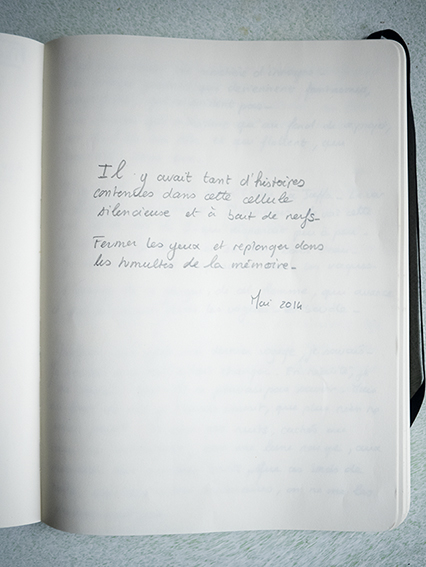 Il y avait tant d'histoires
contenues dans cette cellule
silencieuse et à bout de nerfs_
Fermer les yeux et replonger dans
les tumultes de la mémoire_
Mai 2014